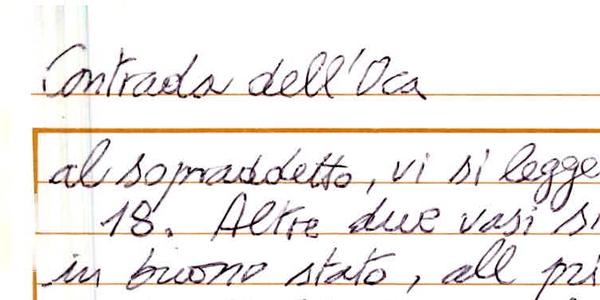 Contrada dell'Oca
al sopraddetto, vi si legge
18. Altre due vasi si
in buono stato, all pri